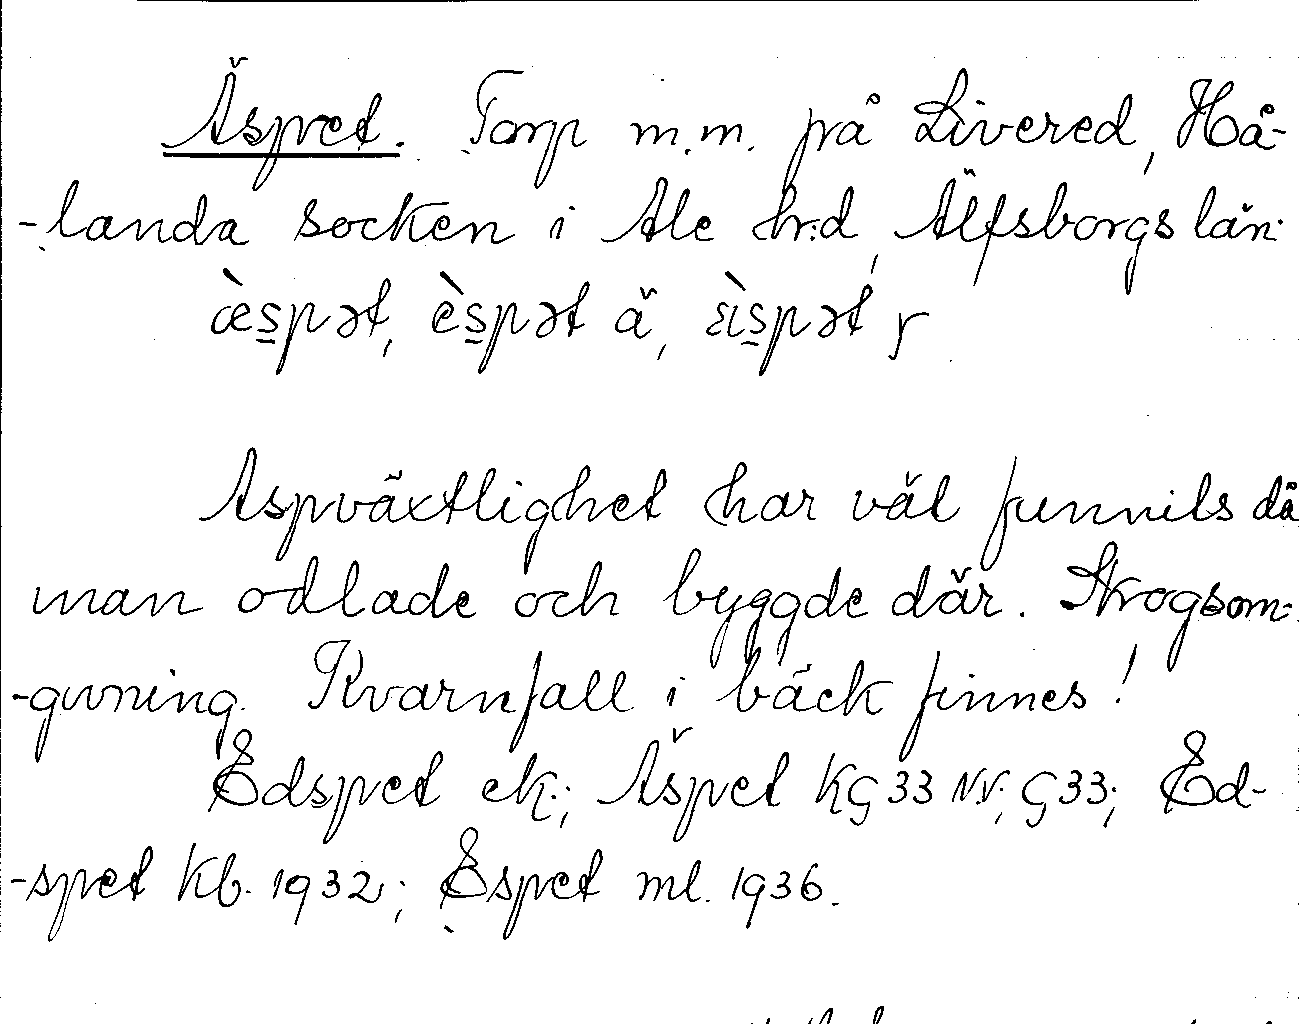 Äspet. Torp m.m. på Livered, Hå-
-landa socken i Ale hrd, Älfsborgs län.
æspət, èspət ä, ɛìspət y
Aspväxtlighet har väl funnits då
man odlade och byggde där. Skogsom-
-givning. Kvarnfall i bäck finnes!
Edspet ek.; Äspet KG 33 NV; G 33; Ed-
-spet Kb. 1932; Espet ml. 1936.